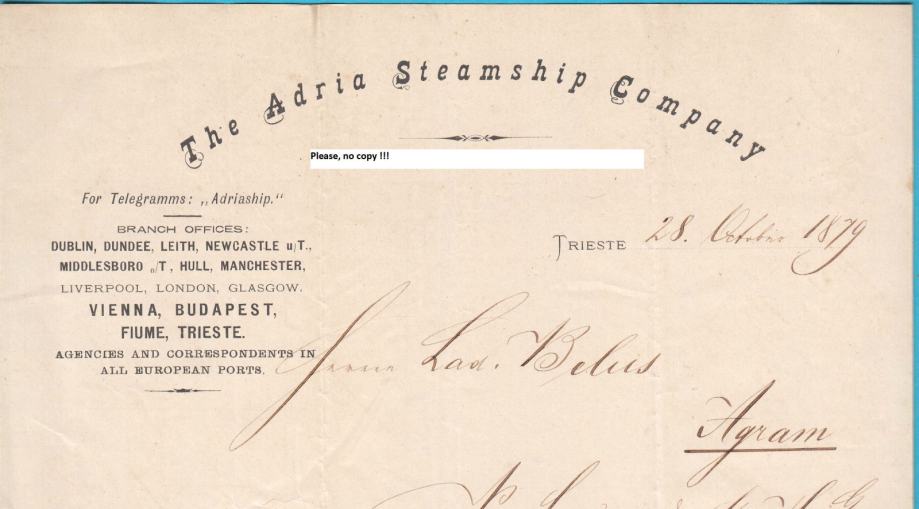 The Adria Steamship Company
Please, no copy !!!
For Telegramms: „Adriaship."
BRANCH OFFICES:
DUBLIN, DUNDEE, LEITH, NEWCASTLE u/T.,
MIDDLESBORO o/T, HULL, MANCHESTER,
LIVERPOOL, LONDON, GLASGOW.
VIENNA, BUDAPEST,
FIUME, TRIESTE.
AGENCIES AND CORRESPONDENTS IN
ALL EUROPEAN PORTS.
TRIESTE 28. October 1879
Herrn Lad. Belus
Agram